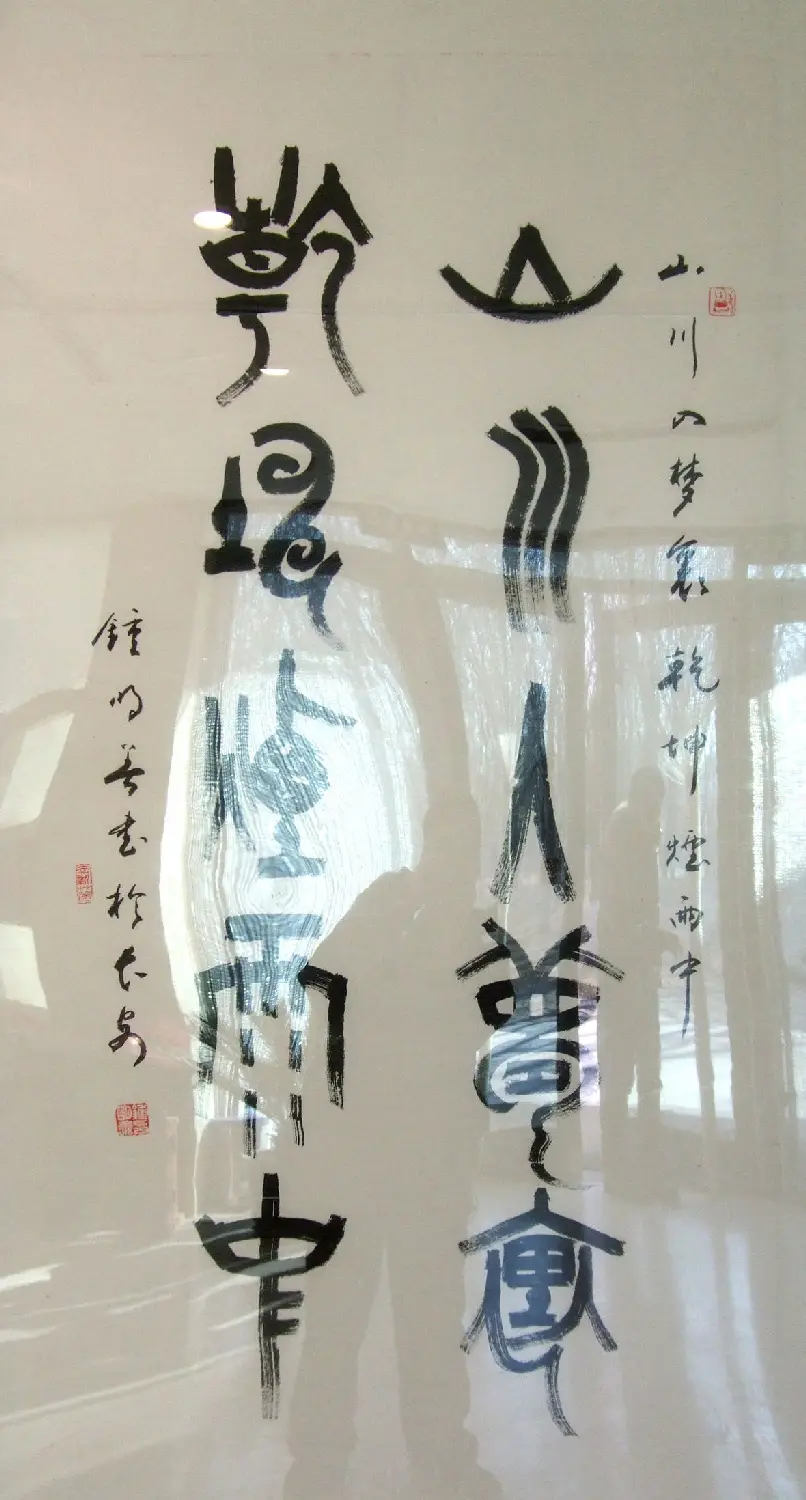 山川入夢裏乾坤煙雨中
山川入夢裏
乾坤煙雨中
鍾明善書於長安